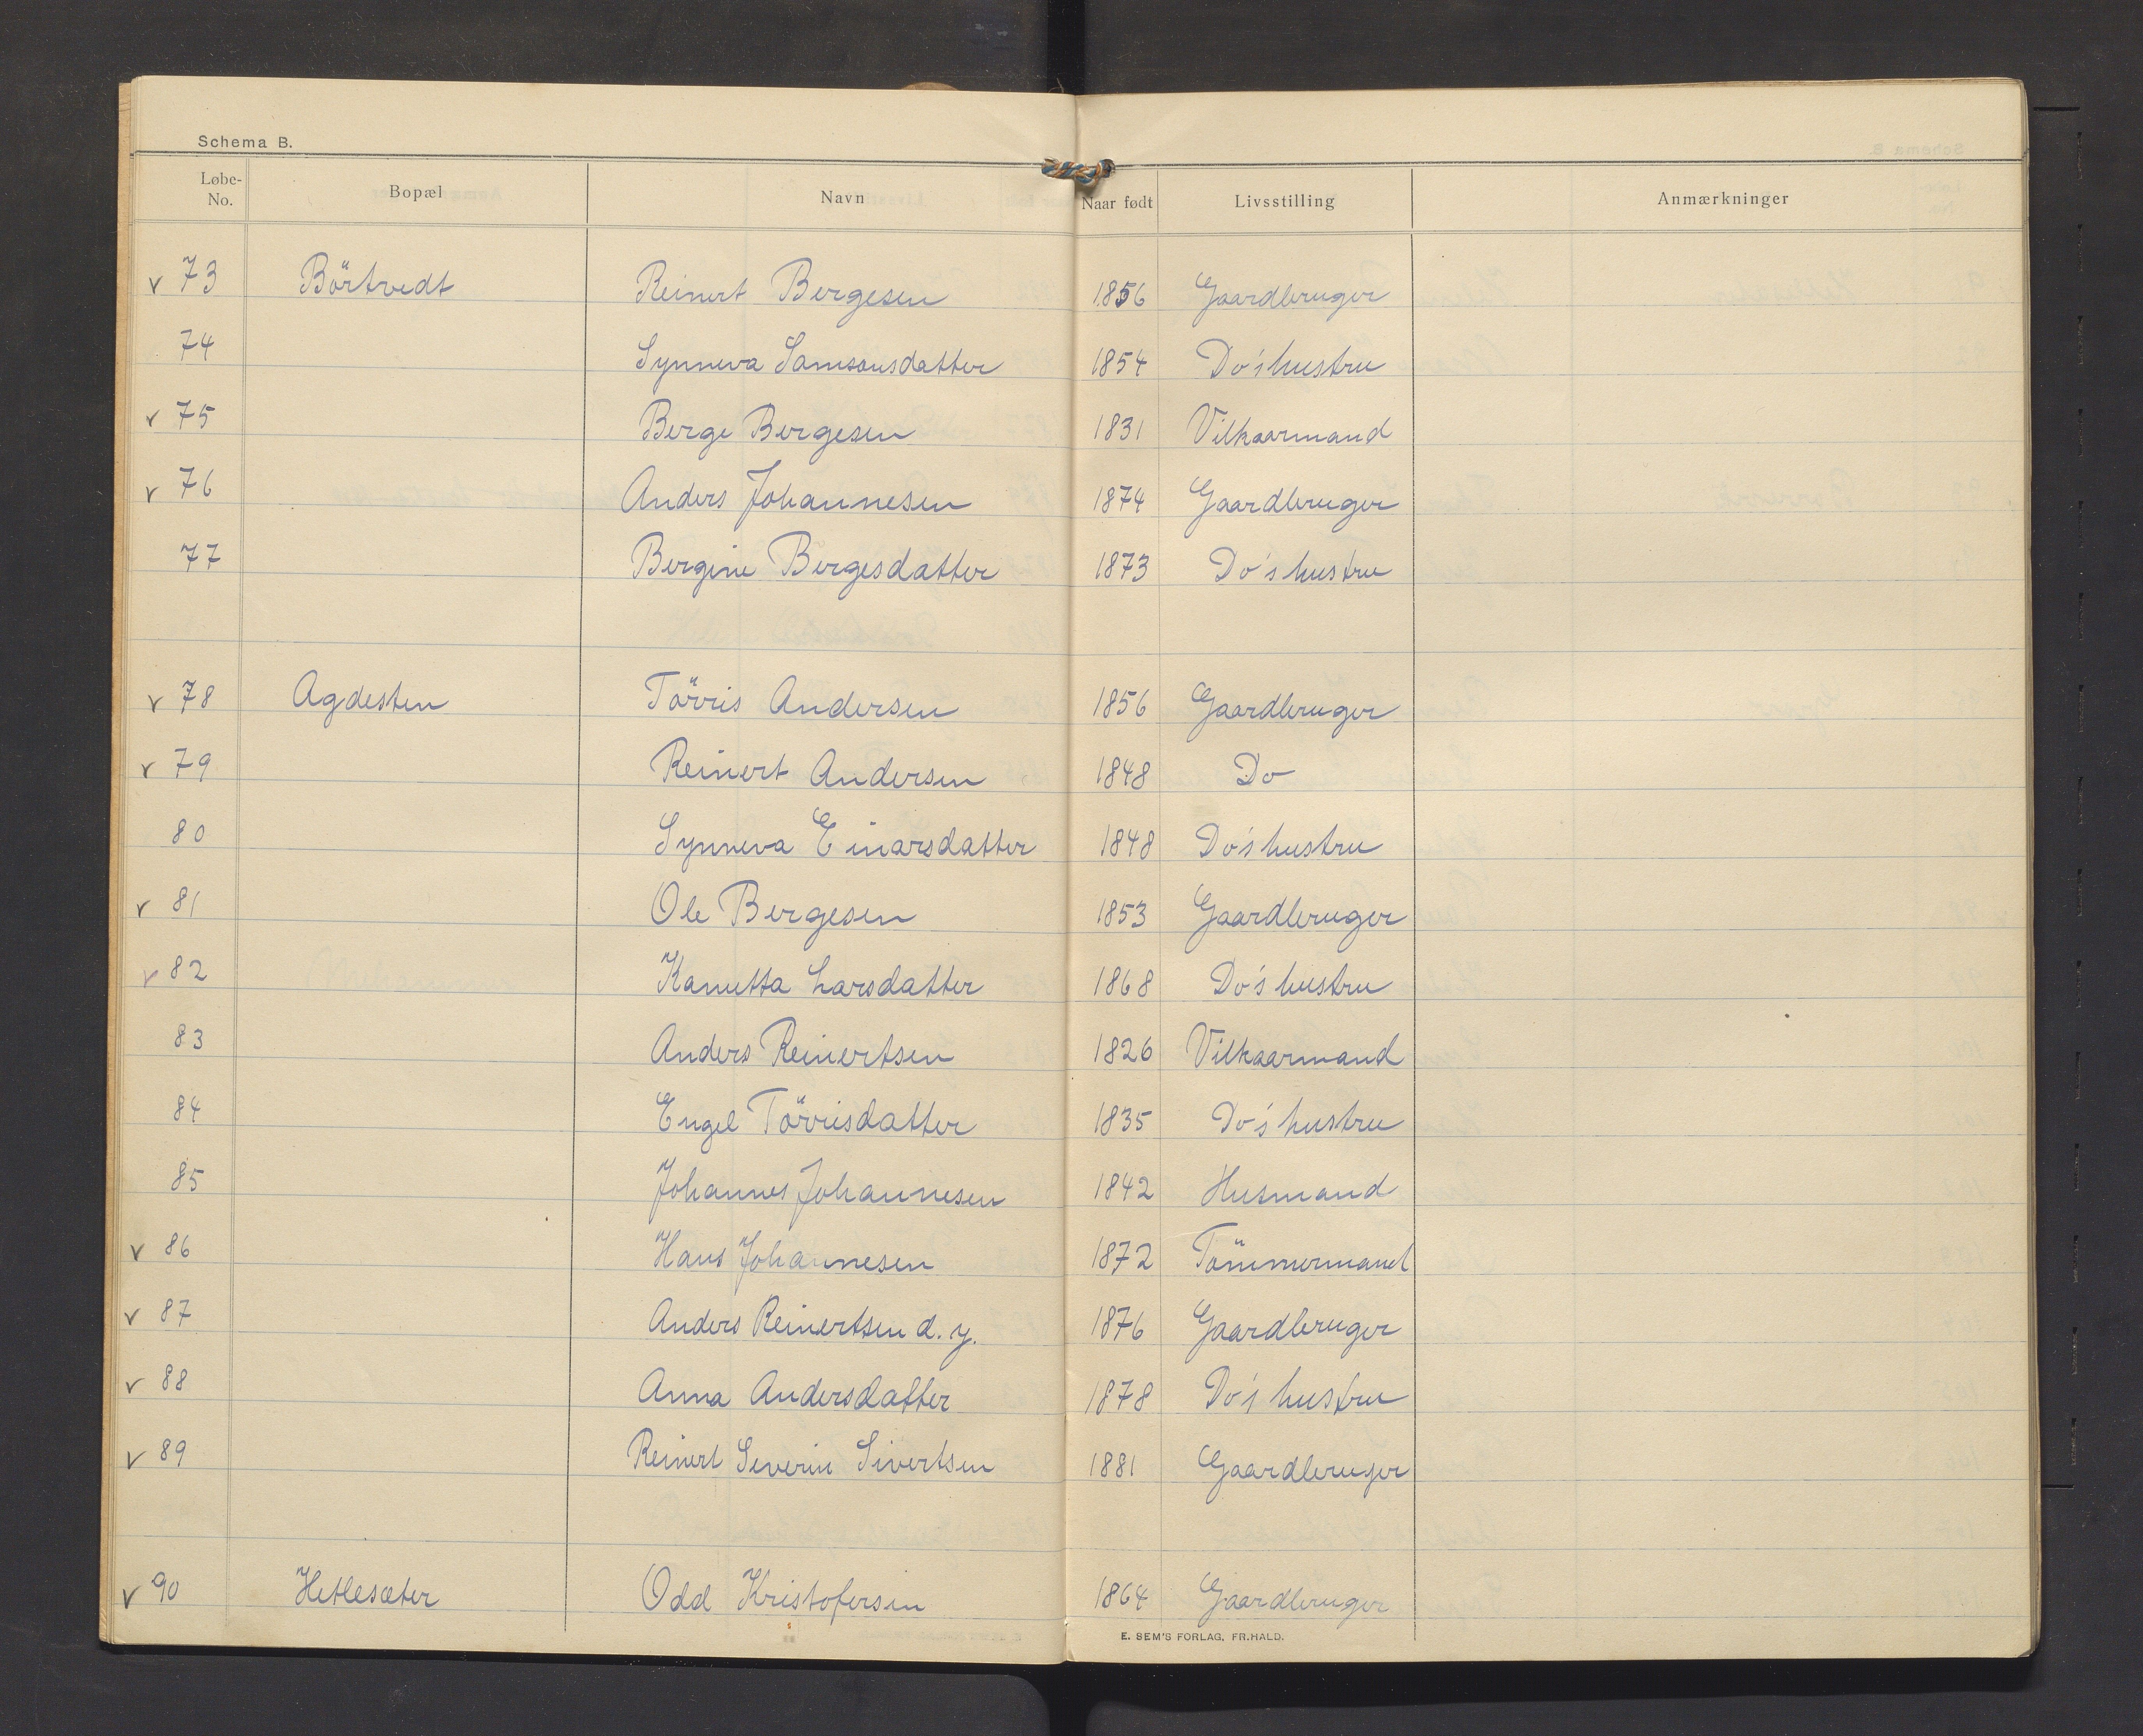 Schema B.
Løbe-No. Bopæl Navn Naar født Livsstilling Anmærkninger
v 73 Börtvedt Reinert Bergesen 1856 Gaardbruger
74 Synneva Samsonsdatter 1854 Do's hustru
v 75 Berge Bergesen 1831 Vilkaarmand
v 76 Anders Johannesen 1874 Gaardbruger
77 Bergine Bergesdatter 1873 Do's hustru
v 78 Agdesten Törris Andersen 1856 Gaardbruger
v 79 Reinert Andersen 1848 Do
80 Synneva Einarsdatter 1848 Do's hustru
v 81 Ole Bergesen 1853 Gaardbruger
v 82 Kanutta Larsdatter 1868 Do's hustru
83 Anders Reinertsen 1826 Vilkaarmand
84 Engel Törrisdatter 1835 Do's hustru
85 Johannes Johannesen 1842 Husmand
v 86 Hans Johannesen 1872 Tömmermand
v 87 Anders Reinertsen d. y. 1876 Gaardbruger
v 88 Anna Andersdatter 1878 Do's hustru
v 89 Reinert Severin Sivertsen 1881 Gaardbruger
v 90 Hetlesæter Odd Kristofersen 1864 Gaardbruger
E. SEM'S FORLAG, FR.HALD.